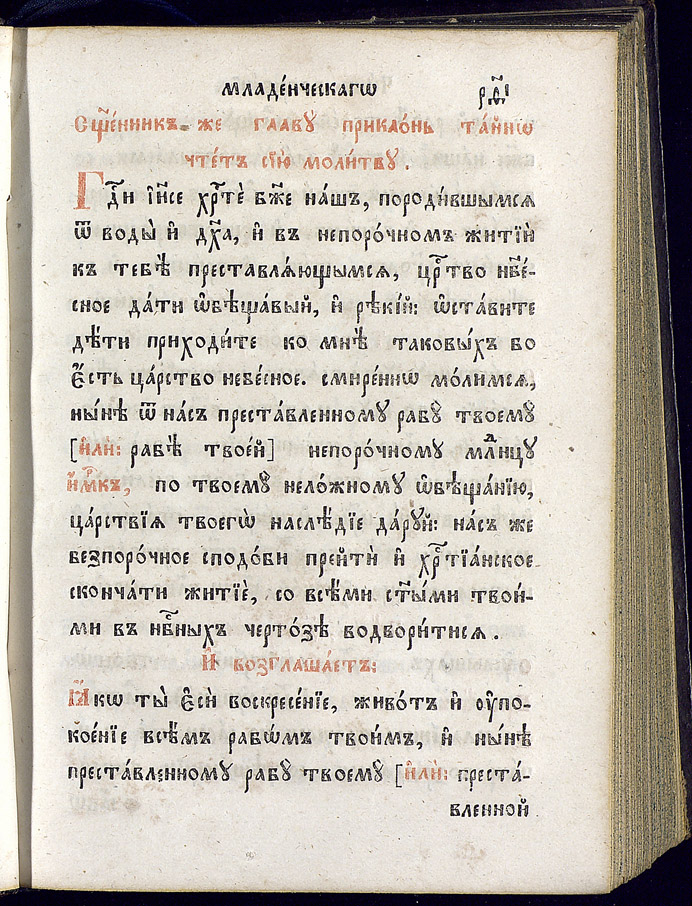 младе́нческагѡ р҃ѯі
Сщ҃е́нникъ же главꙋ̀ прикло́нь та́йнѡ
чте́тъ сїю̀ моли́твꙋ.
Гдⷭ҇и і҆и҃се хрⷭ҇тѐ бж҃е на́шъ, породи́вшымсѧ
ѿ воды̀ и҆ дх҃а, и҆ въ непоро́чномъ житїѝ
къ тебѣ̀ преставлѧ́ющымсѧ, црⷭ҇тво нбⷭ҇е́-
сное да́ти ѡ҆бѣща́вый, и҆ рѣкі́й: ѡ҆ста́вите
дѣ́ти приходи́те ко мнѣ̀ таковы́хъ бо
є҆́сть ца́рство небе́сное. смире́ннѡ мо́лимсѧ,
ны́нѣ ѿ на́съ преста́вленномꙋ рабꙋ̀ твоемꙋ̀
[и҆лѝ: рабѣ̀ твое́й] непоро́чномꙋ млⷣнцꙋ
и҆́м҃къ, по твоемꙋ̀ нело́жномꙋ ѡ҆бѣща́нїю,
ца́рствїѧ твоегѡ̀ наслѣ́дїе да́рꙋй: на́съ же
безпоро́чное сподо́би прейтѝ и҆ хрⷭ҇тїа́нское
сконча́ти житїѐ, со всѣ́ми ст҃ы́ми твои́-
ми въ нбⷭ҇ныхъ черто́зѣ водвори́тисѧ.
И҆ возглаша́етъ:
Ꙗ҆́кѡ ты̀ є҆сѝ воскресе́нїе, живо́тъ и҆ ᲂу҆по-
кое́нїе всѣ́мъ рабѡ́мъ твои́мъ, и҆ ны́нѣ
преста́вленномꙋ рабꙋ̀ твоемꙋ̀ [и҆лѝ: преста́-
вленной